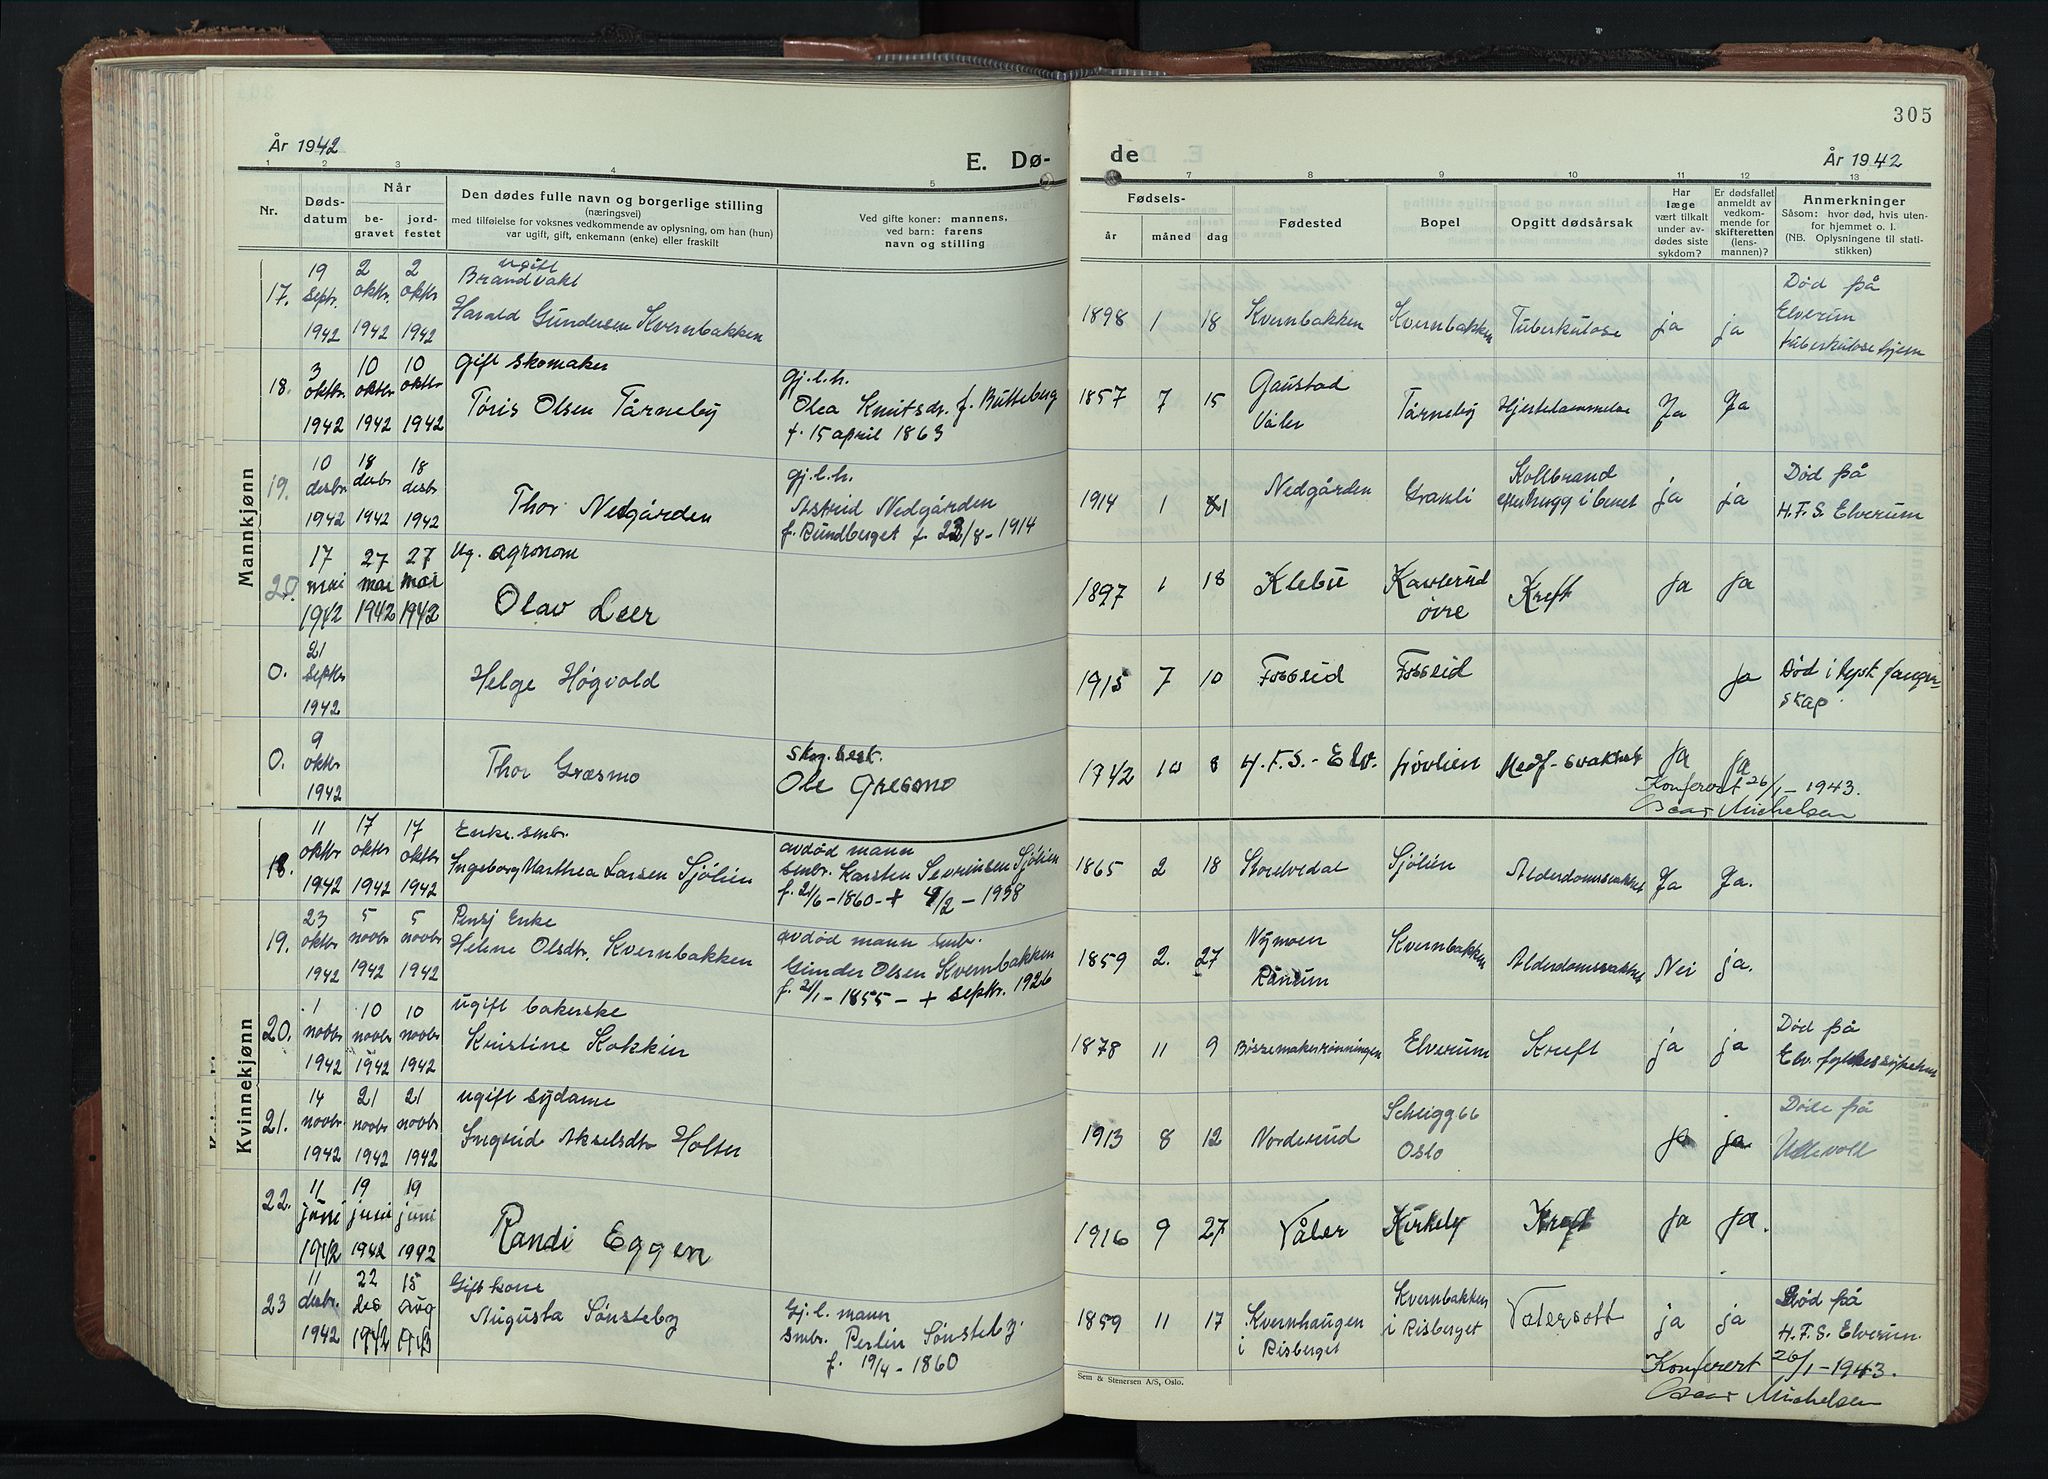 305
År 1942
E. Dø-
de
År 1942
1 2 3 4 5 7 8 9 10 11 12 13
Nr.
Døds-
datum
Når
be-
gravet
jord-
festet
Den dødes fulle navn og borgerlige stilling
(næringsvei)
med tilføielse for voksnes vedkommende av oplysning, om han (hun)
var ugift, gift, enkemann (enke) eller fraskilt
Ved gifte koner: mannens,
ved barn: farens
navn og stilling
Fødsels-
år måned dag
Fødested
Bopel
Opgitt dødsårsak
Har
læge
vært tilkalt
under av-
dødes siste
sykdom?
Er dødsfallet
anmeldt av
vedkom-
mende for
skifteretten
(lens-
mannen)?
Anmerkninger
Såsom: hvor død, hvis uten-
for hjemmet o. l.
(NB. Oplysningene til stati-
stikken)
Mannkjønn
17.
19 septr. 1942
2 oktbr. 1942
2 oktbr 1942
ugift
Brandvakt
Harald Gundersen Kvernbakken
1898 1 18 Kvernbakken Kvernbakken Tuberkulose ja ja
Død på
Elverum
tuberkulosehjem
18.
3 oktbr. 1942
10 oktbr 1942
10 oktbr. 1942
Gift skomaker
Tøris Olsen Tårneby
gj. l. h.
Olea Knutsdr. f. Butteberg
f. 15 april 1863
1857 7 15 Gaustad
Våler
Tårneby Hjertelammelse Ja Ja
19.
10 desbr. 1942
18 desbr 1942
18 desbr 1942
Thor Nedgården
gj. l. h.
Astrid Nedgården
f. Rundberget f. 23/8 - 1914
1914 1 Nedgården Granli Koldbrand
efter hugg i benet
ja ja
Død på
H.F.S. Elverum
20.
17 mai 1942
27 mai 1942
27 mai 1942
Ug. agronom
Olav Leer
1897 1 18 Klebu Kavlerud
øvre
Kreft Ja Ja
0.
21 septbr 1942
Helge Høgvold
1915 7 10 Fosseid Fosseid Ja
Død i tysk fangen-
skap.
0.
9 oktbr 1942
Thor Græsmo
Skog.best.
Ole Gresmo
1942 10 8 H.F.S. - Elv. Løvlien Medf. svakhet Ja Ja
Konferert 26/1 - 1943.
Oscar Michelsen
Kvinnekjønn
18.
11 oktbr 1942
17 oktbr 1942
17 oktbr 1942
Enke. smbr.
Ingeborg Marthea Larsen Sjølien
avdød mann
smbr. Karsten Severinsen Sjølien
f. 21/6 - 1860 - + 4/2 - 1938
1865 2 18 Storelvedal Sjølien Alderdomssvakhet Ja Ja.
19.
23 oktbr 1942
5 novbr 1942
5 novbr. 1942
Pensj Enke
Helene Olsdtr. Kvernbakken
avdød mann smbr.
Gunder Olsen Kvernbakken
f. 21/1 - 1855 - + septbr. 1926
1859 2. 27 Nymoen
Rånum
Kvernbakken Alderdomssvakhet Nei ja.
20.
1 novbr 1942
10 novbr 1942
10 novbr 1942
ugift bakerske
Kristine Kokkin
1878 11 9 Bøssemakerrønningen Elverum Kreft ja ja
Død på
Elv. fylkessykehus
21.
14 novbr 1942
21 novbr 1942
21 novbr. 1942
ugift sydame
Ingrid Akselsdtr Holter
1913 8 12 Norderud
Schleigg 66
Oslo
ja ja
Døde på
Ullevold
22.
11 juni 1942
19 juni 1942
19 juni 1942
Randi Eggen
1916 9 27 Våler Kirkeby Kreft Ja Ja.
23
11 desbr. 1942
22 des 1942
15 aug 1943
Gift kone
Augusta Sønsteby
Gj. l. mann
smbr. Perlin Sønsteby.
f. 19/4 - 1860
1859 11 17 Kvernhaugen
i Risberget
Kvernbakken
i Risberget
Vatersott ja ja
Død på
H.F.S. Elverum.
Konferert 26/1 - 1943.
Oscar Michelsen
Sem & Stenersen A/S, Oslo.